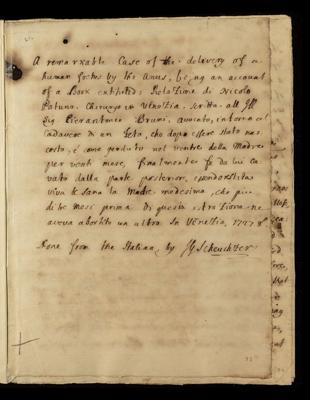 A remarkable Case of the delivery of a
human foetus by the Anus, being an account
of a Book entituled: Relazione di Nicolo
Patuno. Chirurgo in Venezia. scritta all Ill
Sig Pierantonio Bruni, avocato, intorno al
Cadavere di un Feto, che dopo essere stato nas
costo, e come perduto nel ventre della Madre
per venti mese, finalmente fu da lui ca
vato dalla parte posteriore, essendo restata
viva e sana la Madre medesima, che piu
di tre mesi prima di questa estrazione ne
aveva abortito un altro. In Venezia, 1727 8°
Done from the Italian by JG Scheuchzer